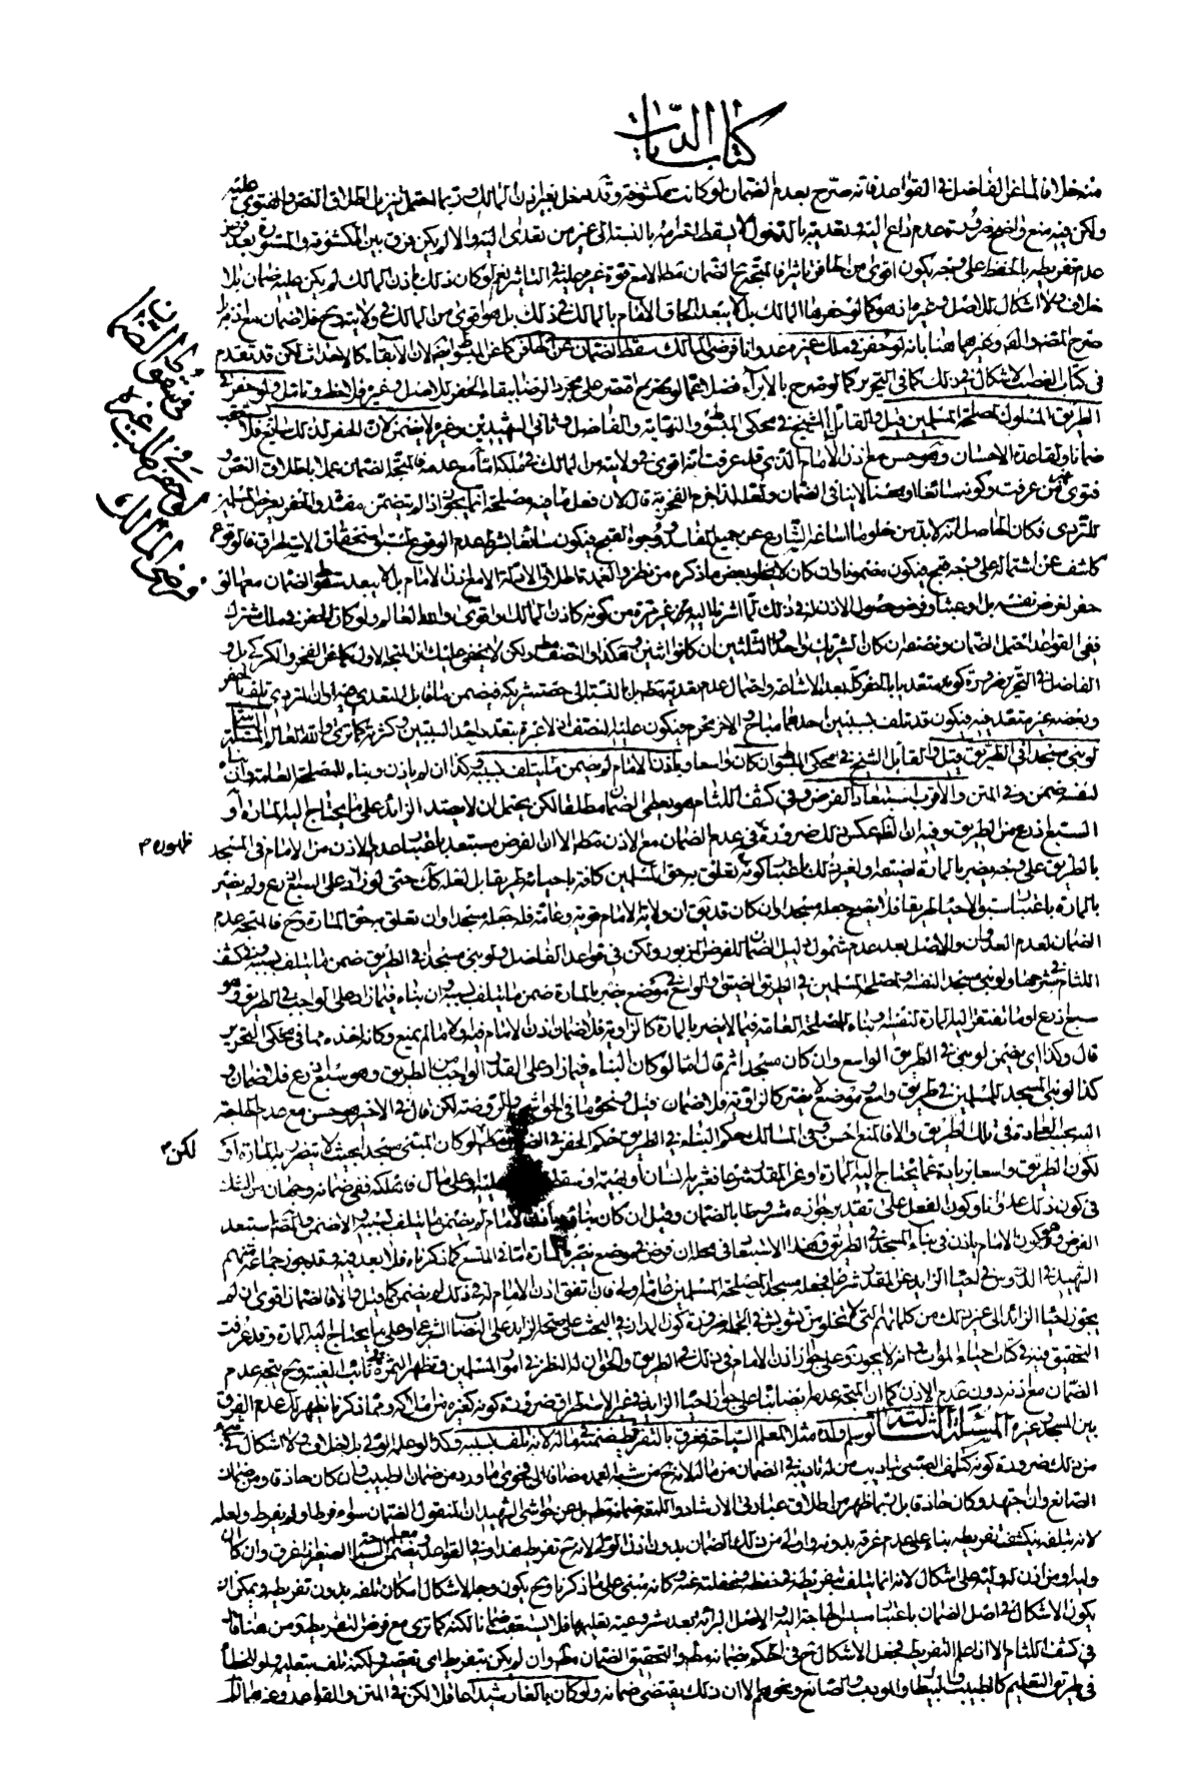 كتاب الديات
منه خلافا لما عن الفاضل في القواعد فانه صرح بعدم الضمان لو كانت مكشوفة وقد دخل بغير اذن المالك وربما احتمل تنزيل اطلاق النص والفتوى عليه
ولكن فيه منع واضح ضرورة عدم داع اليه وتعديه بالدخول لا يسقط الغرم بالنسبة الى غيره من تعدى اليه والا لم يكن فرق بين المكشوفة والمستورة بعد فرض
عدم تفريطه بالحفظ على وجه يكون اقوى من الحافر تاثيرا فالمتجه الضمان مطلقا مع قوة غيره عليه في التاثير نعم لو كان ذلك باذن المالك لم يكن عليه ضمان بلا
خلاف ولا اشكال للاصل وغيره انه هو كما لو حفرها المالك بل لا يبعد الحاق الامام بالمالك في ذلك بل هو اقوى من المالك في ولايته وح فلا ضمان مع اذنه بل
صرح المصنف والفاضل وغيرهما هنا بانه لو حفر في ملك غيره عدوانا فرضي المالك سقط الضمان عن الحافر كما عن المبسوط ايضا لان الابقاء كالاحداث لكن قد تقدم
في كتاب الغصب الاشكال في ذلك كما في التحرير كما لو صرح بالابراء فضلا عما لو لم يصرح اقتصر على مجرد الرضا ببقاء الحفر للاصل وغيره فلاحظ وتامل ولو حفر في
الطريق المسلوك لمصلحة المسلمين قيل والقائل الشيخ في محكي المبسوط والنهاية والفاضل وثاني الشهيدين وغيره لا يضمن لان الحفر لذلك سايغ فلا يستعقب
ضمانا ولقاعدة الاحسان وهو حسن مع اذن الامام الذي قد عرفت انه اقوى في ولايته من المالك في ملكه اما مع عدمه فالمتجه الضمان عملا باطلاق النص و
فتوى من عرفت وكونه سائغا او محسنا لا ينافي الضمان
للتردى فكان الحاصل انه لا بد من خلو ما اساغه الشارع عن جميع المفاسد ووجوه القبح فيكون سائغا بشرط عدم الوقوع
كاشف عن اشتماله على وجه قبح فيكون مضمونا وان كان لا يخلو بعض ما ذكره من نظر والعمدة اطلاق الادلة الا مع اذن الامام بل لا يبعد سقوط الضمان معها لو
حفر لغرض نفسه بل او عبثا وفرض حصول الاذن له في ذلك لما اشرنا اليه غير مرة من كونه كاذن المالك او اقوى والله العالم ولو كان الحفر في ملك مشترك
ففي القواعد احتمل الضمان ونصفه ان كان الشريك واحدا والثلثين ان كانوا اثنين وهكذا والنصف مطلقا ولكن لا يخفى عليك ان المتجه الاول كما عن الفخر والكركي بل و
الفاضل في التحرير ضرورة كونه متعديا بالحفر كله بعد الاشاعة واحتمال عدم تعديه بالنسبة الى حصة شريكه فيضمن ما قابل المتعدي فيه او ان المتردي تلف بالحفر
وبعضه غير متعد فيه فيكون قد تلف بسببين احدهما مباح والاخر محرم فيكون عليه النصف اذ لا عبرة بتعدد احد السببين وكثرته كما ترى والله العالم المسئلة الثانية
لو بنى مسجدا في الطريق قيل والقائل الشيخ في محكي المبسوط ان كان واسعا وباذن الامام لم يضمن ما يتلف بسببه وكذا ان لم ياذن وبناه للمصلحة العامة وان بناه
لنفسه ضمن وفي المتن والاقرب استبعاد الفرض وفي كشف اللثام هو يعطي الضمان مطلقا لكن يحتمل ان لا يستبعد الزائد على ما يحتاج اليه المارة او
السبع اذرع من الطريق وفيه ان الظاهر عكس ذلك ضرورة عدم الضمان مع الاذن مطلقا الا ان الفرض مستبعد باعتبار عدم الاذن من الامام في المسجد
بالطريق على وجه يضر بالمارة لضيقه او لغير ذلك باعتبار كونه تعلق به حق المسلمين كافة باحيائه طريقا بل لعله كك حتى لو زاد على السبع اذرع ولم يضر
بالمارة باعتبار سبق الاحياء طريقا فلا يصح جعله مسجدا وان كان قد يقال ان ولاية الامام قوية وعامة فله جعله مسجدا وان تعلق به حق المارة وح فالمتجه عدم
الضمان لعدم العدوان والاصل بعد عدم شمول دليل الضمان للفرض المزبور ولكن في قواعد الفاضل ولو بنى مسجدا في الطريق ضمن ما يتلف بسببه وفي كشف
اللثام في شرحها ولو بنى مسجدا لنفسه او لمصلحة المسلمين في الطريق الضيق او الواسع في موضع يضر بالمارة ضمن ما يتلف بسببه وان بناه فيما زاد على الواجب في الطريق وهو
سبع اذرع او ما تفتقر اليه المارة لنفسه او بناه للمصلحة العامة فيما لا يضر بالمارة كالزاوية فلا ضمان ان اذن الامام فيه او ما لم يمنع وكانه اخذه مما في محكي التحرير
قال وكذا اي يضمن لو بنى في الطريق الواسع وان كان مسجدا ثم قال اما لو كان البناء فيما زاد على القدر الواجب من الطريق وهو سبع اذرع فلا ضمان و
كذا لو بنى المسجد للمسلمين في طريق واسع وموضع لا يضر كالزاوية فلا ضمان قيل ونحوه ما في الحواشي والروضة لكن قال في الاخير هو حسن مع عدم الحاجة
اليه بحسب العادة في تلك الطريق والا فالمنع احسن وفي المسالك حكم البناء في الطريق حكم الحفر في الضمان فلو كان المبتني مسجدا بحيث لا يتضرر به المارة او
لكون الطريق واسعا زيادة عما يحتاج اليه المارة او عن المقدر شرعا فعثر به انسان او بهيمة او سقط عليه او على مال فاهلكه ففي ضمانه وجهان من الشك
في كون ذلك عدوانا وكون الفعل على تقدير جوازه مشروطا بالضمان وقيل ان كان بناؤه باذن الامام لم يضمن ما يتلف بسببه والا ضمن والمصنف استبعد
الفرض وهو كون الامام ياذن في بناء المسجد في الطريق وهذا الاستبعاد في محله ان فرض في موضع يضر بالمارة اما في المتسع كما ذكرناه فلا بعد فيه وقد جوز جماعة منهم
الشهيد في الدروس في احياء الزايد عن المقدر شرعا فجعله مسجدا لمصلحة المسلمين عامة اولى فان اتفق اذن الامام له في ذلك لم يضمن كما قيل والا فالضمان اقوى ان لم
يجوز احياء الزائد الى غير ذلك من كلماتهم التي لا تخلو من تشويش في الجملة ضرورة كون المدار في البحث على منع الزايد على النصاب الشرعي او على ما يحتاج اليه المارة وقد عرفت
التحقيق فيه في كتاب احياء الموات في انه لا يجوز وعلى جواز اذن الامام في ذلك في الطريق والجواز ان له النظر في امور المسلمين وتظهر الثمرة في نائب الغيبة وح يتجه عدم
الضمان مع اذنه دون عدم الاذن كما ان المتجه عدمه ايضا بناء على جواز احياء الزايد في غير الاستطراق ضرورة كونه كغيره من املاكه ومما ذكرنا يظهر لك عدم الفرق
بين المسجد وغيره المسئلة الثالثة لو سلم ولده مثلا لمعلم السباحة فغرق بالتفريط ضمنه في ماله لانه تلف بسببه وكذا لو علمه الولي بلا خلاف ولا اشكال في شيء
من ذلك ضرورة كونه كتلف الصبي بتاديب من له تاديبه في الضمان من ماله لانه ح من شبه العمد مضافا الى فحوى ما ورد من ضمان الطبيب وان كان حاذقا ومن ضمان
الصانع وان اجتهد وكان حاذقا بل ربما ظهر من اطلاق عبارتي الارشاد واللمعة ضمانه مطلقا بل عن حواشي الشهيد ان المنقول الضمان سواء فرط او لم يفرط ولعله
لانه بتلفه ينكشف تفريطه بناء على عدم غرقه بدونه واولى من ذلك الضمان بدون اذن الولي
وليه او من اذن له وليه على اشكال لانه انما يتلف بتفريطه في حفظه وغفلته عنه وكانه مبني على ما ذكرنا وح يكون وجه الاشكال امكان تلفه بدون تفريطه ويمكن ان
يكون الاشكال في اصل الضمان باعتبار مسيس الحاجة اليه والاصل البرائة بعد مشروعية تعليمها فلا يستعقب ضمانا لكنه كما ترى مع فرض التفريط ومن هنا قال
في كشف اللثام الا ان علم التفريط فجعل الاشكال ح في الحكم بضمانه مطلقا والتحقيق الضمان مطلقا وان لم يكن بتفريط اي تقصير ولكنه تلف بتعليمه ولو للخطأ
في طريق التعليم كالطبيب والبيطار والمؤدب والصانع ونحوهم الا ان ذلك يقتضي ضمانه ولو كان بالغا رشيدا عاقلا لكن في المتن والقواعد وغيرهما انه
في سقوط الضمان
لو حفر في ملك غيره
فرضي المالك
ظهوره م
لكن م